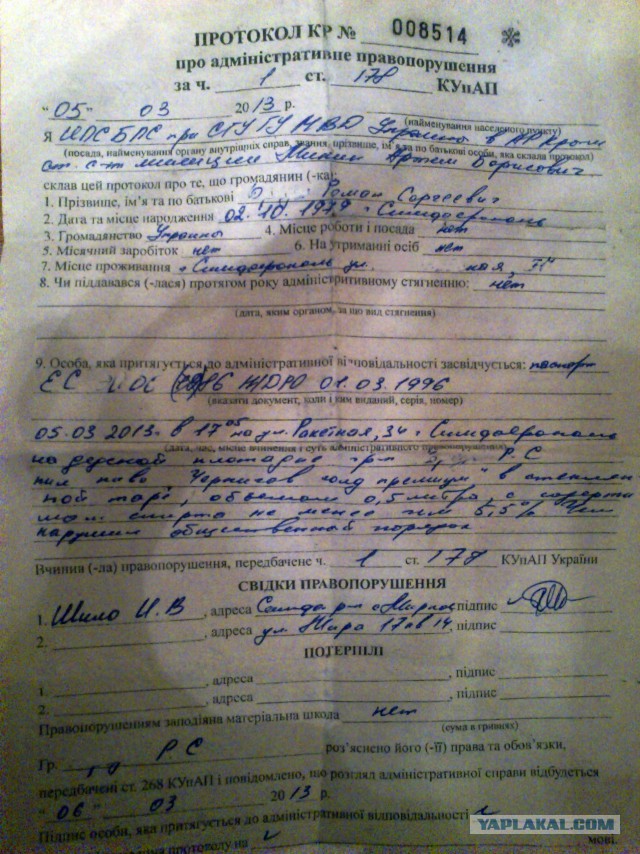 ПРОТОКОЛ КР № 008514
про адміністративне правопорушення
за ч. 1 ст. 178 КУпАП
"05" 03 2013 р.
(найменування населеного пункту)
Я при СГУ ГУ МВД Украины в АР Крым
(посада, найменування органу внутрішніх справ, звання, прізвище, ім'я та по батькові особи, яка склала протокол)
милиции Артем Борисович
склав цей протокол про те, що громадянин (-ка):
1. Прізвище, ім'я та по батькові Роман Сергеевич
2. Дата та місце народження 02.10.1979 г. Симферополь
3. Громадянство Украина 4. Місце роботи і посада нет
5. Місячний заробіток нет 6. На утриманні осіб нет
7. Місце проживання г. Симферополь ул. ная,
8. Чи піддавався (-лася) протягом року адміністративному стягненню: нет
(дата, яким органом, за що вид стягнення)
9. Особа, яка притягується до адміністративної відповідальності засвідчується: паспорт
ЕС 01.03.1996
(вказати документ, коли і ким виданий, серія, номер)
05.03.2013 в 17 05 на ул. Ракетная, 34 г. Симферополь
(дата, час, місце вчинення і суть адміністративного правопорушення)
на детской площадке гр-н Р.С
пил пиво "Чернигов голд премиум" в стеклян
ной таре, объемом 0,5 литра, с содержа
спирта не менее чем 5,5% Чем
нарушил общественный порядок
Вчинив (-ла) правопорушення, передбачене ч. 1 ст. 178 КУпАП України
СВІДКИ ПРАВОПОРУШЕННЯ
1. Шило И.В , адреса підпис
2. , адреса ул. Мира , підпис
ПОТЕРПІЛІ
1. , адреса , підпис
2. , адреса , підпис
Правопорушенням заподіяна матеріальна шкода нет
(сума в гривнях)
Гр. Р.С роз'яснено його (-її) права та обов'язки,
передбачені ст. 268 КУпАП і повідомлено, що розгляд адміністративної справи відбудеться
"06" 03 2013 р.
Підпис особи, яка притягується до адміністративної відповідальності
протоколу на мові.
YAPLAKAL.COM